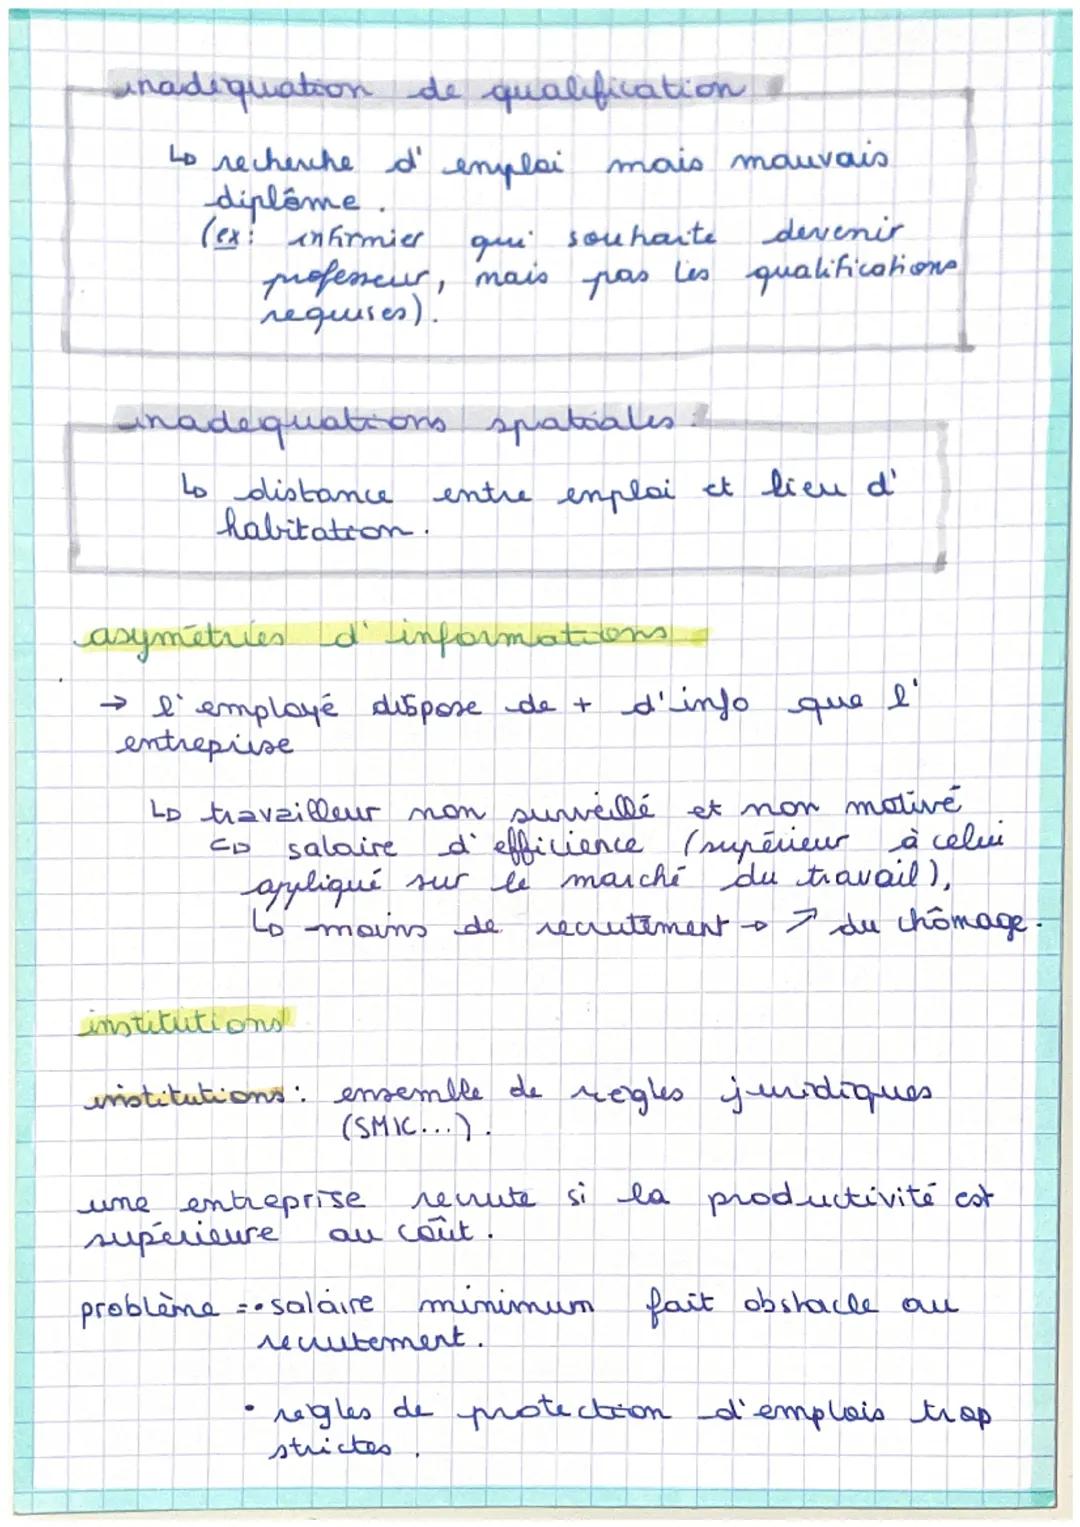 inadéquation de qualification
↳ recherche d' emploi mais mauvais
diplôme.
(ex: infirmier qui souhaite devenir
professeur, mais pas les qualifications
requises).
inadequations spatiales :
↳ distance entre emploi et lieu d'
habitation.
asymétries d' informations
→ l'employé dispose de + d'info que l'
entreprise
↳ travailleur non surveillé et non motivé
⇨ salaire d'efficience (supérieur à celui
appliqué sur le marché du travail),
↳ moins de recrutement → ↗ du chômage.
institutions
institutions : ensemble de règles juridiques
(SMIC...).
une entreprise recrute si la productivité est
supérieure au coût.
problème = • salaire minimum fait obstacle au
recrutement.
• règles de protection d'emplois trop
strictes.